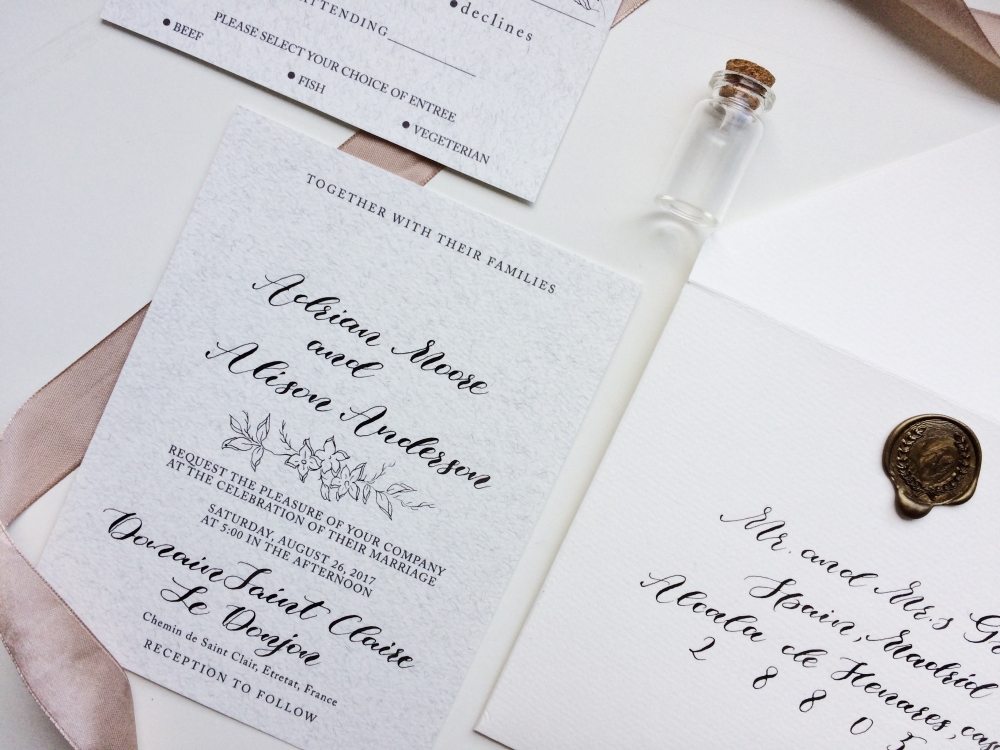 ATTENDING
declines
PLEASE SELECT YOUR CHOICE OF ENTREE
BEEF
FISH
VEGETERIAN
TOGETHER WITH THEIR FAMILIES
Adrian Moore
and
Alison Anderson
REQUEST THE PLEASURE OF YOUR COMPANY
AT THE CELEBRATION OF THEIR MARRIAGE
SATURDAY, AUGUST 26, 2017
AT 5:00 IN THE AFTERNOON
Domain Saint Claire
Le Donjon
Chemin de Saint Clair, Etretat, France
RECEPTION TO FOLLOW
Mr. and Mr.s
Spain, Madrid
Alcala de Henares,
2 8 8 0 5